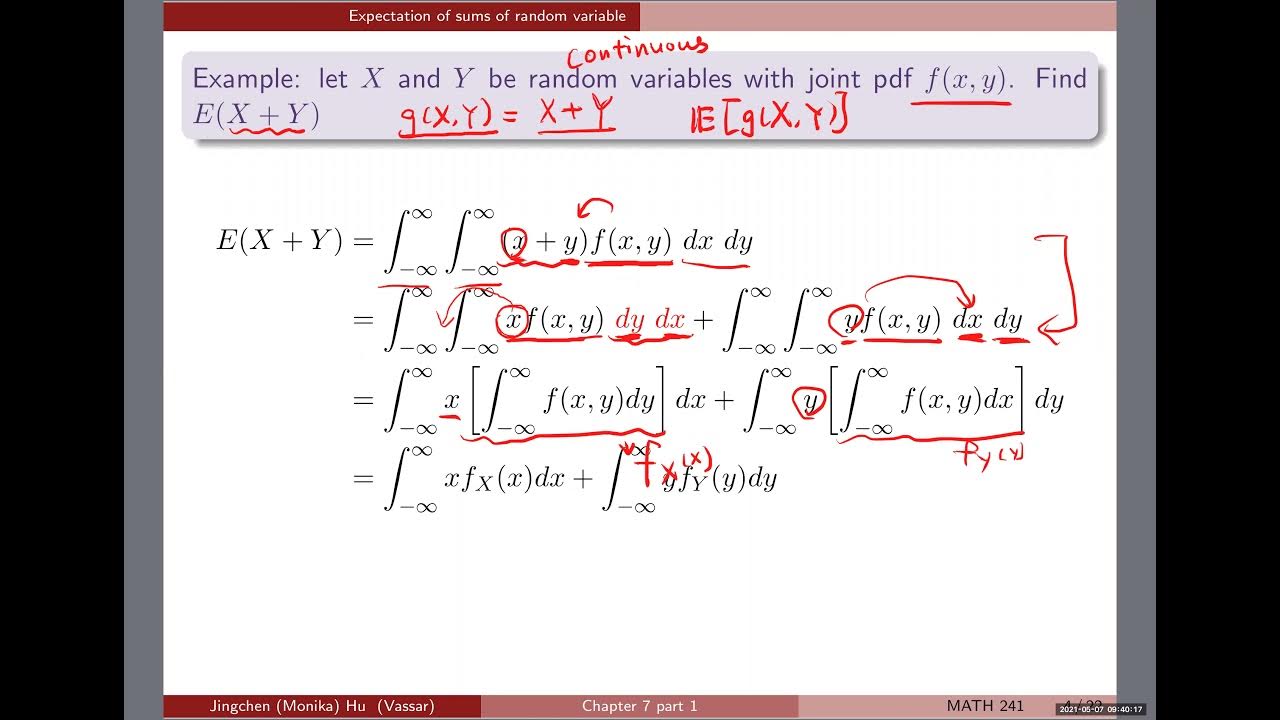 Expectation of sums of random variable
continuous
Example: let X and Y be random variables with joint pdf f(x, y). Find
E(X + Y) g(X,Y) = X+Y 𝔼[g(X,Y)]
E(X + Y) = ∫_{−∞}^{∞} ∫_{−∞}^{∞} (x + y)f(x, y) dx dy
= ∫_{−∞}^{∞} ∫_{−∞}^{∞} xf(x, y) dy dx + ∫_{−∞}^{∞} ∫_{−∞}^{∞} yf(x, y) dx dy
= ∫_{−∞}^{∞} x [∫_{−∞}^{∞} f(x, y)dy] dx + ∫_{−∞}^{∞} y [∫_{−∞}^{∞} f(x, y)dx] dy
f_X(x) f_Y(y)
= ∫_{−∞}^{∞} xf_X(x)dx + ∫_{−∞}^{∞} yf_Y(y)dy
Jingchen (Monika) Hu (Vassar) Chapter 7 part 1 MATH 241
2021-05-07 09:40:17